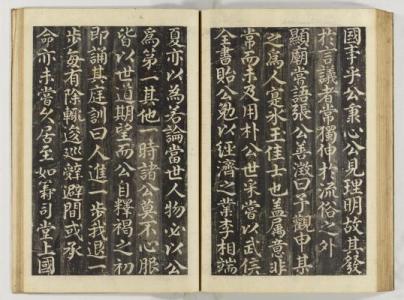 國事乎公秉心公見理明故其發
於言議者常獨伸於流俗之外
顯廟常語張公善澂曰予觀申某
之爲人寔氷玉佳士也盖屬意非
常而未及用朴公世采嘗以武侯
全書貽公勉以經濟之業李相端
夏亦以為若論當世人物必以公
爲第一其他一時諸公莫不心服
皆以世道期望而公自釋褐之初
即誦其庭訓曰人進一步我退一
步每有除輙逡巡辭避間或承
命亦未嘗久居至如義司堂上國